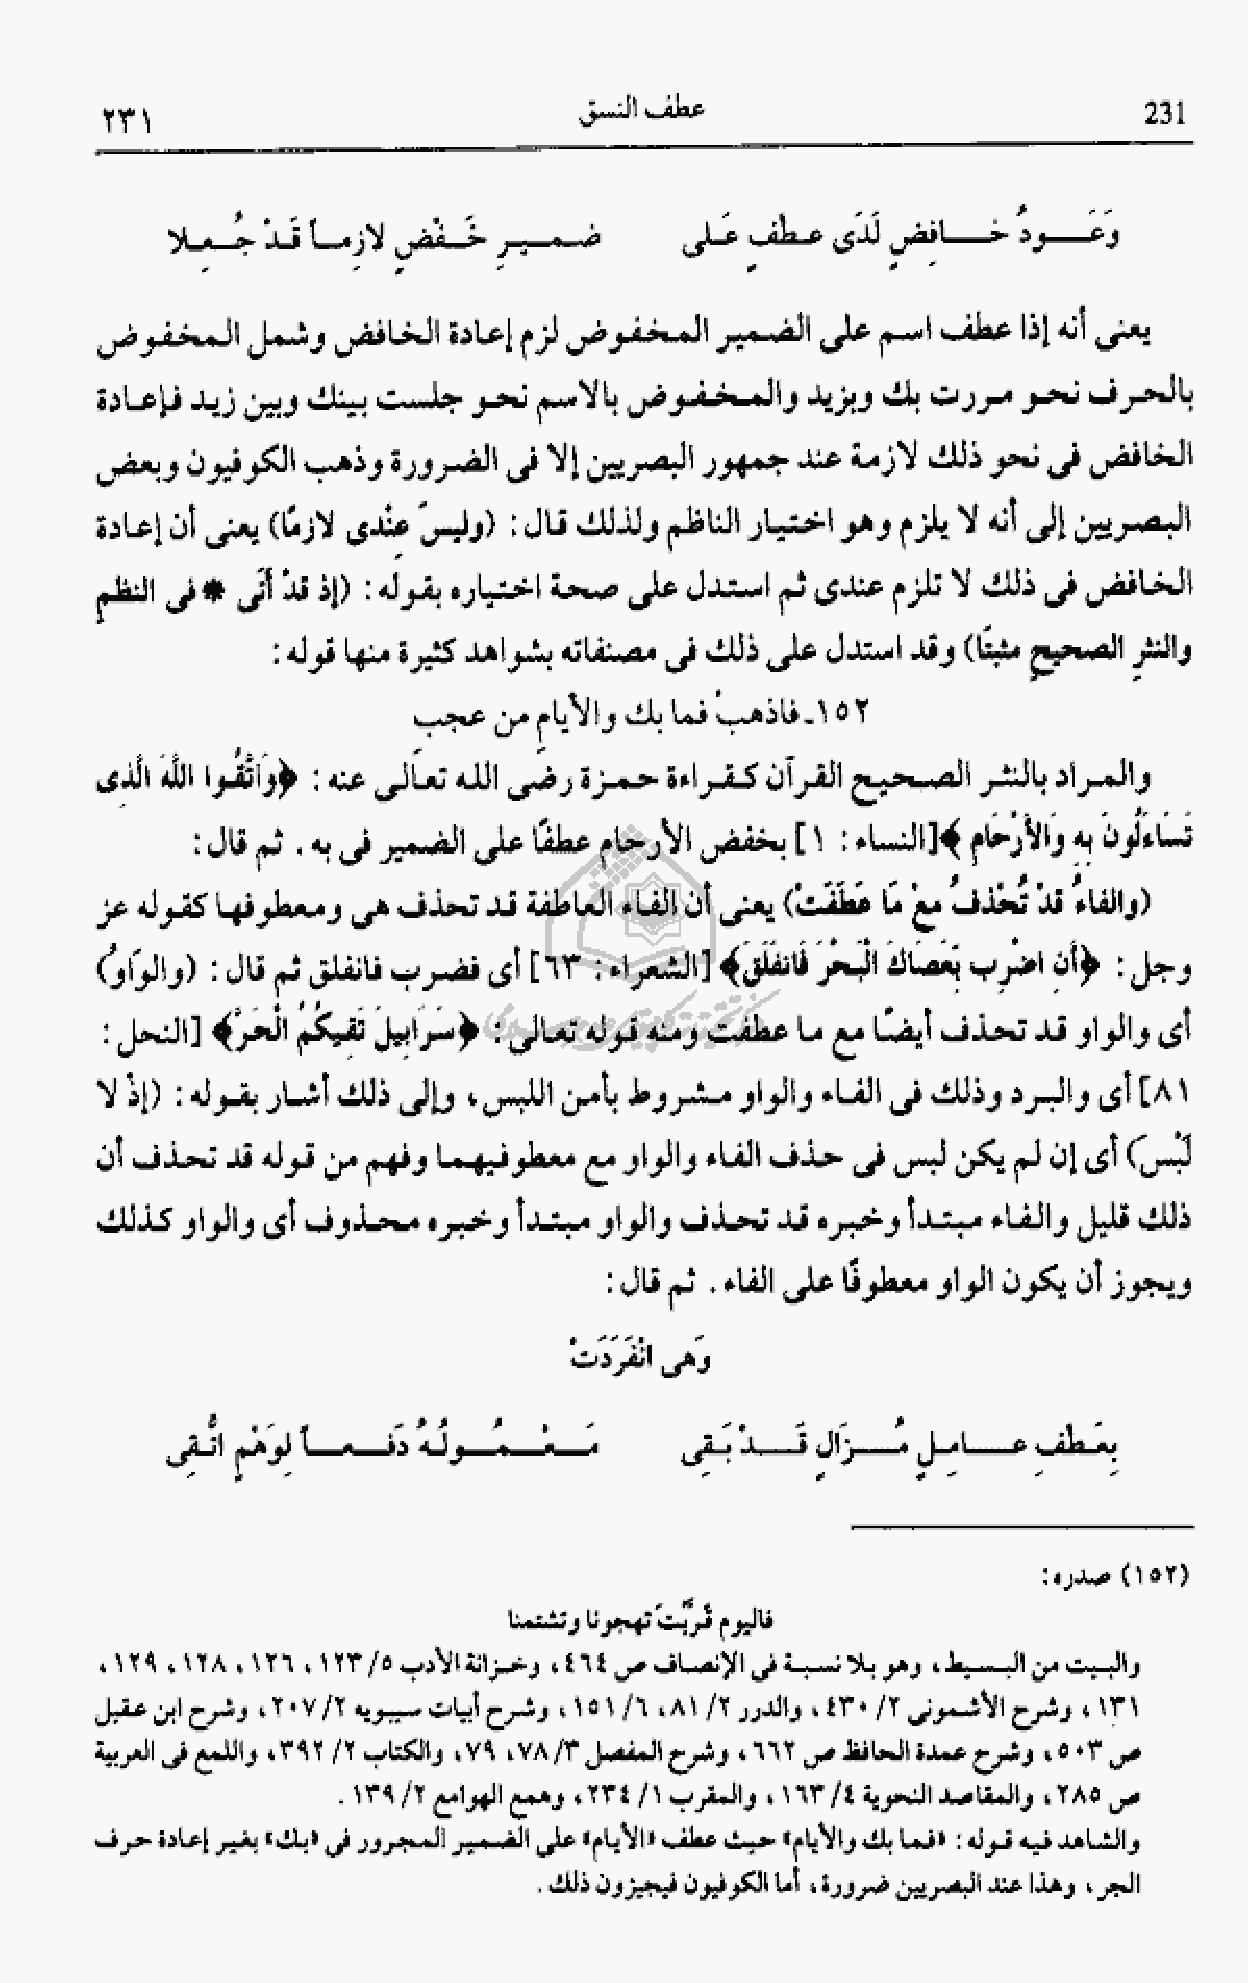 231 عطف النسق ٢٣١
وَعَـــودُ خـــافِضٍ لَدَى عـطْفٍ عَـلى ضـمـيـرِ خَـفْضٍ لازِمـاً قَـدْ جُـعِـلا
يعنى أنه إذا عطف اسم على الضمير المخفوض لزم إعادة الخافض وشمل المخفوض
بالحرف نحو مررت بك وبزيد والمخفوض بالاسم نحو جلست بينك وبين زيد فإعادة
الخافض فى نحو ذلك لازمة عند جمهور البصريين إلا فى الضرورة وذهب الكوفيون وبعض
البصريين إلى أنه لا يلزم وهو اختيار الناظم ولذلك قال : (وليسَ عِنْدى لازمًا) يعنى أن إعادة
الخافض فى ذلك لا تلزم عندى ثم استدل على صحة اختياره بقوله : (إذ قدْ أَتَى * فى النظمِ
والنثرِ الصحيحِ مثبتَا) وقد استدل على ذلك فى مصنفاته بشواهد كثيرة منها قوله :
١٥٢ـ فاذهبْ فما بك والأيامِ من عجبِ
والمراد بالنثر الصحيح القرآن كقراءة حمزة رضى الله تعالى عنه : ﴿وَاتَّقُوا اللَّهَ الَّذِى
تَسَاءَلُونَ بِهِ وَالأَرْحَامِ ﴾[النساء : ١] بخفض الأرحام عطفًا على الضمير فى به . ثم قال :
(والفاءُ قدْ تُحْذفُ معْ مَا عَطَفَتْ) يعنى أن الفاء العاطفة قد تحذف هى ومعطوفها كقوله عز
وجل : ﴿أَنِ اضْرِب بِّعَصَاكَ الْبَحْرَ فَانفَلَقَ﴾ [الشعراء : ٦٣] أى فضرب فانفلق ثم قال : (والوَاوُ)
أى والواو قد تحذف أيضًا مع ما عطفت ومنه قوله تعالى : ﴿سَرَابِيلَ تَقِيكُمُ الْحَرَّ﴾ [النحل :
٨١] أى والبرد وذلك فى الفاء والواو مشروط بأمن اللبس ، وإلى ذلك أشار بقوله : (إذْ لا
لَبْس) أى إن لم يكن لبس فى حذف الفاء والواو مع معطوفيهما وفهم من قوله قد تحذف أن
ذلك قليل والفاء مبتدأ وخبره قد تحذف والواو مبتدأ وخبره محذوف أى والواو كذلك
ويجوز أن يكون الواو معطوفًا على الفاء . ثم قال :
وَهى انْفَرَدَتْ
بِعَـطْفِ عـــامِـلٍ مُـــزَالٍ قَـــدْ بَـقِى مَـــعْـــمُـــولُـهُ دَفـــعـــاً لِوَهْمٍ اتُّـقِى
(١٥٢) صدره :
فاليوم قرَّبْتَ تهجونا وتشتمنا
والبيت من البسيط ، وهو بلا نسبة فى الإنصاف ص ٤٦٤ ، وخزانة الأدب ٥/ ١٢٣ ، ١٢٦ ، ١٢٨ ، ١٢٩ ،
١٣١ ، وشرح الأشمونى ٢/ ٤٣٠ ، والدرر ٢/ ٨١، ٦/ ١٥١ ، وشرح أبيات سيبويه ٢/ ٢٠٧ ، وشرح ابن عقيل
ص ٥٠٣ ، وشرح عمدة الحافظ ص ٦٦٢ ، وشرح المفصل ٣/ ٧٨، ٧٩، والكتاب ٢/ ٣٩٢، واللمع فى العربية
ص ٢٨٥ ، والمقاصد النحوية ٤/ ١٦٣ ، والمقرب ١/ ٢٣٤ ، وهمع الهوامع ٢/ ١٣٩ .
والشاهد فيه قوله : «فما بك والأيام» حيث عطف «الأيام» على الضمير المجرور فى «بك» بغير إعادة حرف
الجر ، وهذا عند البصريين ضرورة ، أما الكوفيون فيجيزون ذلك .